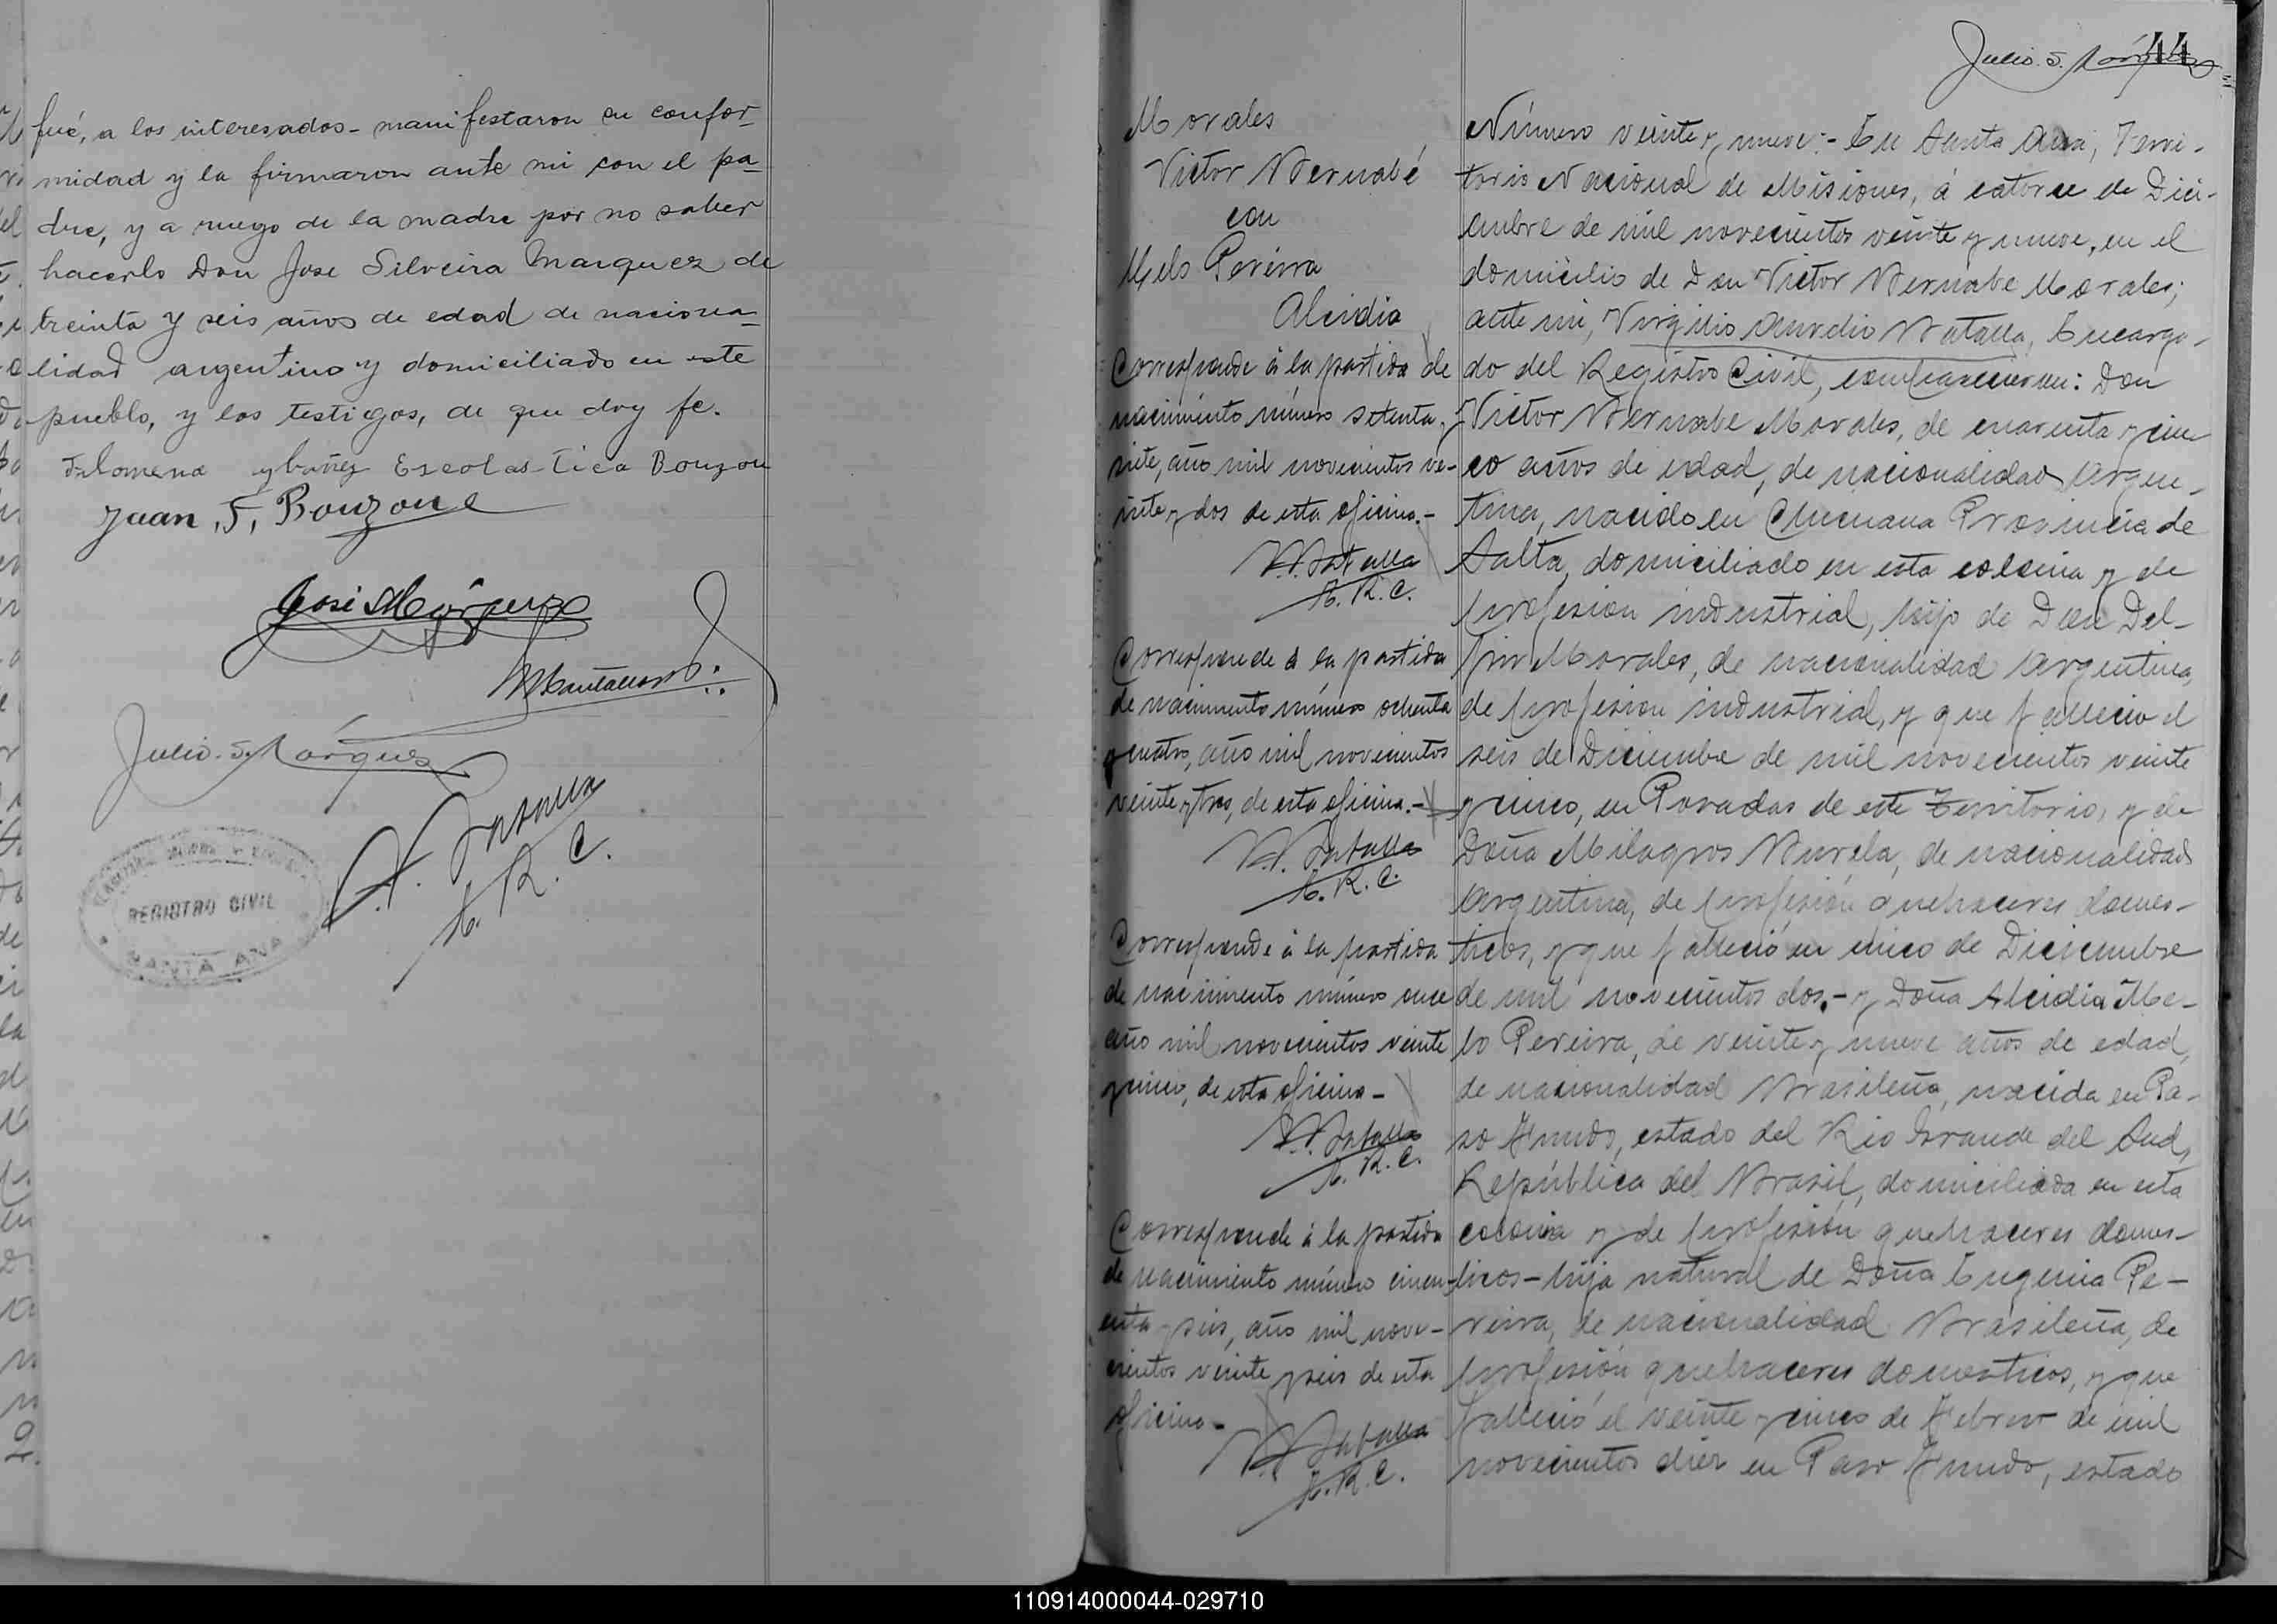 fué, a los interesados - manifestaron su confor-
midad y la firmaron ante mi con el pa-
dre, y a ruego de la madre por no saber
hacerlo Don Jose Silveira Marquez de
treinta y seis años de edad de naciona-
lidad argentino y domiciliado en este
pueblo, y los testigos, de que doy fe.
Filomena Ybañez Escolastica Bouzon
Juan, F, Bouzone
José Márquez
Julio. S. Márquez
E. R. C.
REGISTRO CIVIL
SANTA ANA
Julio. S. Márquez
44
Morales
Victor Bernabé
con
Melo Pereira
Alcidia
Corresponde á la partida de
nacimiento número setenta y
siete, año mil novecientos ve-
inte y dos de esta oficina.-
E. R. C.
Corresponde á la partida
de nacimiento número ochenta
y cuatro, año mil novecientos
veinte y tres, de esta oficina.-
E. R. C.
Corresponde á la partida
de nacimiento número once
año mil novecientos veinte
y cinco, de esta oficina -
E. R. C.
Corresponde á la partida
de nacimiento número cincu-
enta y seis, año mil nove-
cientos veinte y seis de esta
oficina.-
E. R. C.
Número veinte y nueve:- En Santa Ana, Terri-
torio Nacional de Misiones, á catorce de Dici-
embre de mil novecientos veinte y nueve, en el
domicilio de Don Victor Bernabe Morales;
ante mi, Virgilio Aurelio Batalla, Encarga-
do del Registro Civil, comparecieron: Don
Victor Bernabe Morales, de cuarenta y cin
co años de edad, de nacionalidad Argen-
tina, nacido en Chicuana Provincia de
Salta, domiciliado en esta colonia y de
profesion industrial, hijo de Don Del-
fin Morales, de nacionalidad Argentina,
de profesion industrial, y que fallecio el
seis de Diciembre de mil novecientos veinte
y cinco, en Posadas de este Territorio, y de
Doña Milagros Burela, de nacionalidad
Argentina, de profesión quehaceres domes-
ticos, y que falleció en cinco de Diciembre
de mil novecientos dos.- y Doña Alcidia Me-
lo Pereira, de veinte y nueve años de edad,
de nacionalidad Brasileña, nacida en Pa-
so Fundo, estado del Rio Grande del Sud,
República del Brasil, domiciliada en esta
colonia y de profesión quehaceres domes-
ticos - hija natural de Doña Eugenia Pe-
reira, de nacionalidad Brasileña, de
profesión quehaceres domesticos, y que
falleció el veinte y cinco de Febrero de mil
novecientos diez en Paso Fundo, estado
110914000044-029710